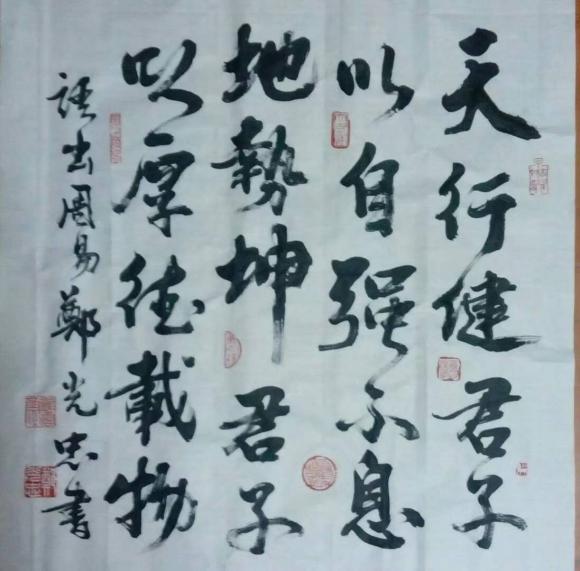 天行健君子
以自强不息
地勢坤君子
以厚德載物
語出周易鄭光忠書